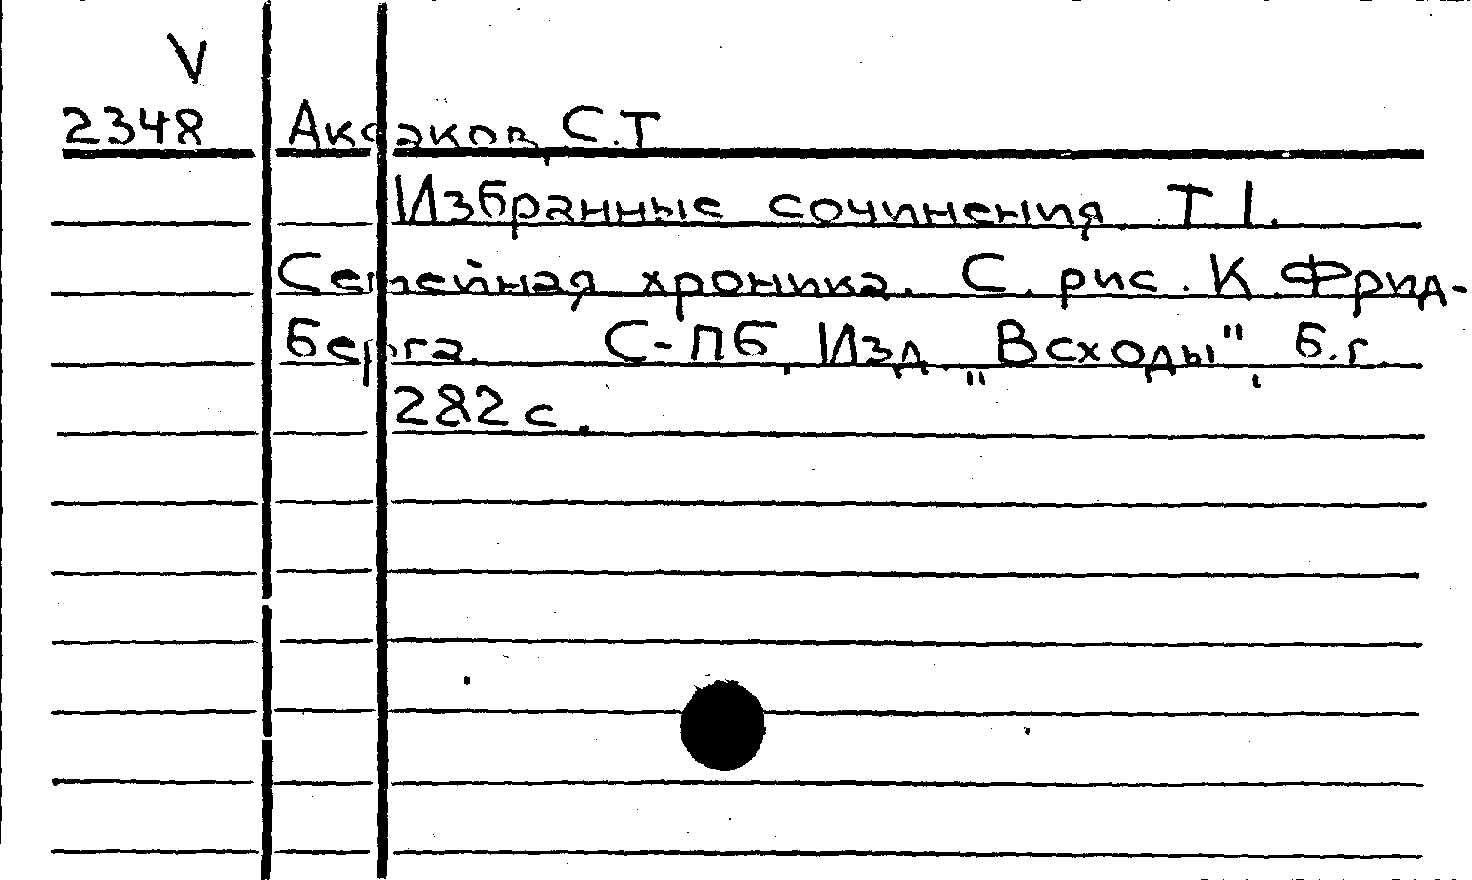 V
2348 Аксаков, С.Т
Избранные сочинения Т 1.
Семейная хроника. С. рис. К Фрид-
берга. С-ПБ, Изд „Всходы", б.г.
282 с.